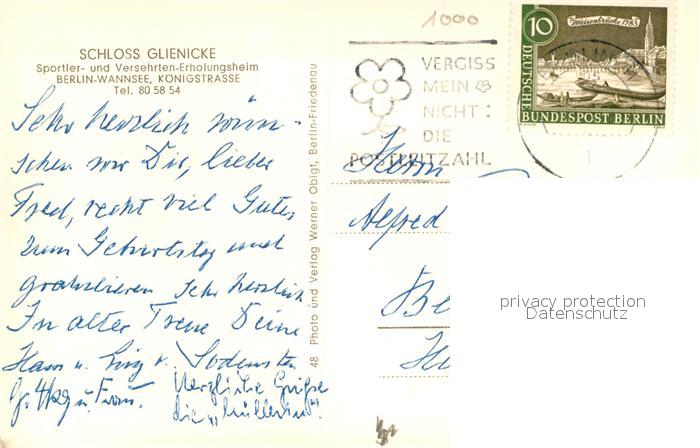 1000
SCHLOSS GLIENICKE
Sportler- und Versehrten-Erholungsheim
BERLIN-WANNSEE, KÖNIGSTRASSE
Tel. 80 58 54
Sehr herzlich wün-
schen wir Dir, lieber
Fred, recht viel Gutes
zum Geburtstag und
gratulieren sehr herzlich
In alter Treue Deine
Hans u.
u. Frau.
Herzliche Grüße
die „Müllerin“.
48 Photo und Verlag Werner Obigt, Berlin-Friedenau
VERGISS
MEIN
NICHT:
DIE
POSTLEITZAHL
10
Waisenbrücke 1783
DEUTSCHE
BUNDESPOST BERLIN
Herrn
Alfred
Be
privacy protection
Datenschutz